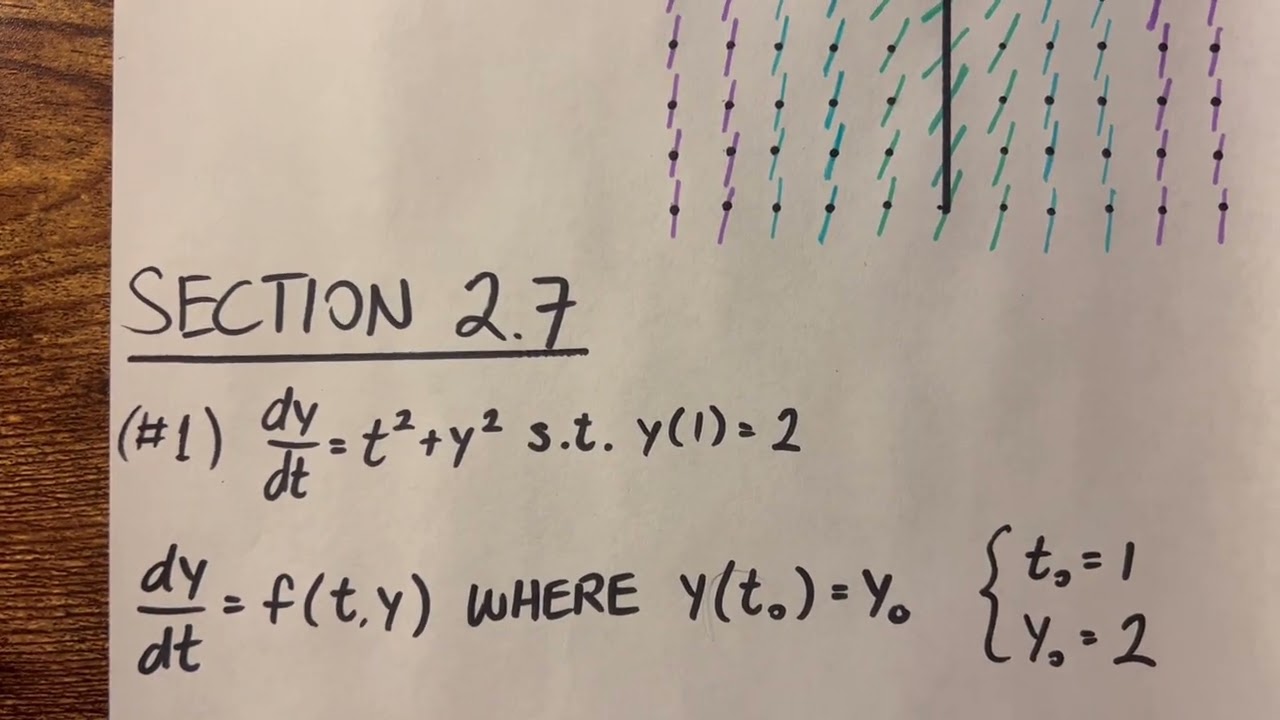 SECTION 2.7
(#1) dy/dt = t² + y² s.t. y(1) = 2
dy/dt = f(t,y) WHERE y(t₀) = y₀ { t₀ = 1
y₀ = 2